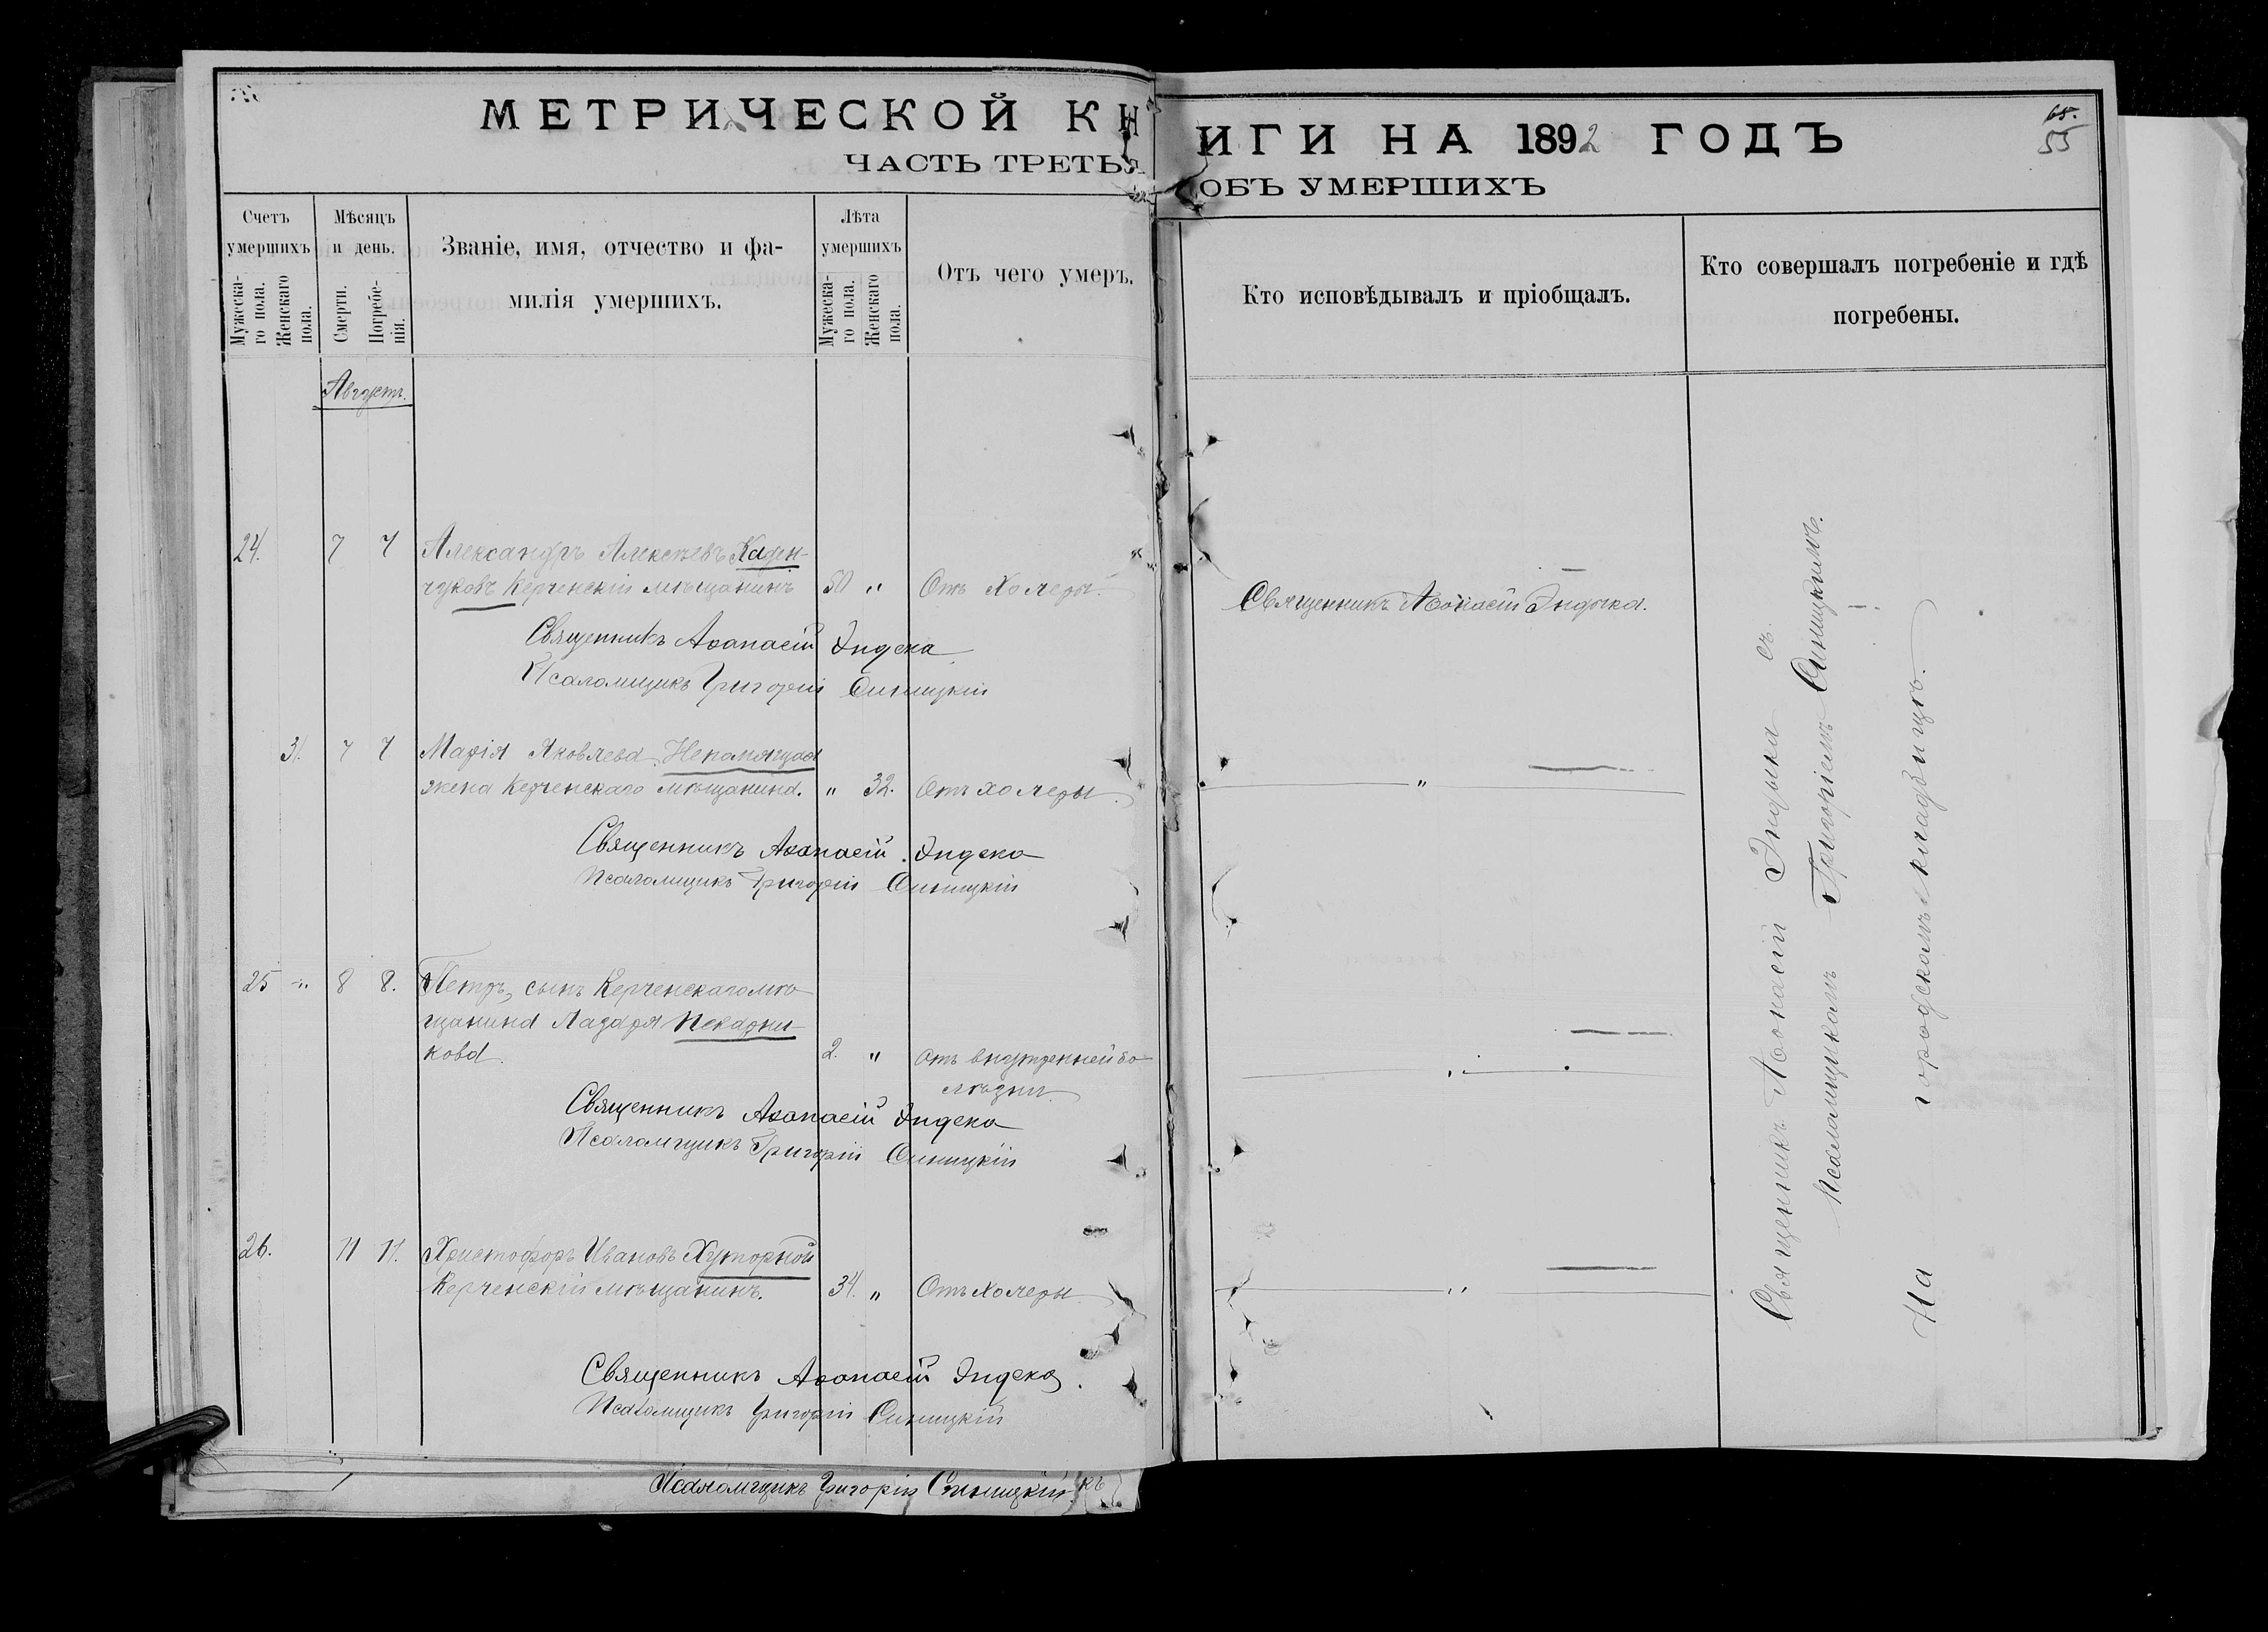 МЕТРИЧЕСКОЙ КН
ЧАСТЬ ТРЕТЬЯ
Счетъ умершихъ
Мужеска-
го пола.
Женскаго
пола.
Мѣсяцъ
и день.
Смерти.
Погребе-
нія.
Званіе, имя, отчество и фа-
милія умершихъ.
Лѣта
умершихъ
Мужеска-
го пола.
Женскаго
пола.
Отъ чего умеръ.
Августъ.
24. 7 7 Александръ Алексѣевъ
Керченскій мѣщанинъ 50 " Отъ Холеры.
Священникъ Аѳанасій Эндека
Псаломщикъ Григорій Синицкій
31. 7 7 Марія Яковлева Непомнящая
жена Керченскаго мѣщанина. " 32. Отъ холеры.
Священникъ Аѳанасій Эндека
Псаломщикъ Григорій Синицкій
25 " 8 8. Петръ, сынъ Керченскаго мѣ-
щанина Лазаря Пекарни-
кова. 2. " отъ внутренней бо-
лѣзни.
Священникъ Аѳанасій Эндека
Псаломщикъ Григорій Синицкій
26. 11 11. Христофоръ Ивановъ Хуторной
Керченскій мѣщанинъ. 34. " Отъ Холеры
Священникъ Аѳанасій Эндека.
Псаломщикъ Григорій Синицкій
Псаломщикъ Григорій Синицкій къ
ИГИ НА 1892 ГОДЪ
65.
55
ОБЪ УМЕРШИХЪ
Кто исповѣдывалъ и пріобщалъ.
Кто совершалъ погребеніе и гдѣ
погребены.
Священникъ Аѳанасій Эндека.
"
"
"
Священникъ Аѳанасій Эндека съ
Псаломщикомъ Григоріемъ Синицкимъ.
На городскомъ кладбищѣ.